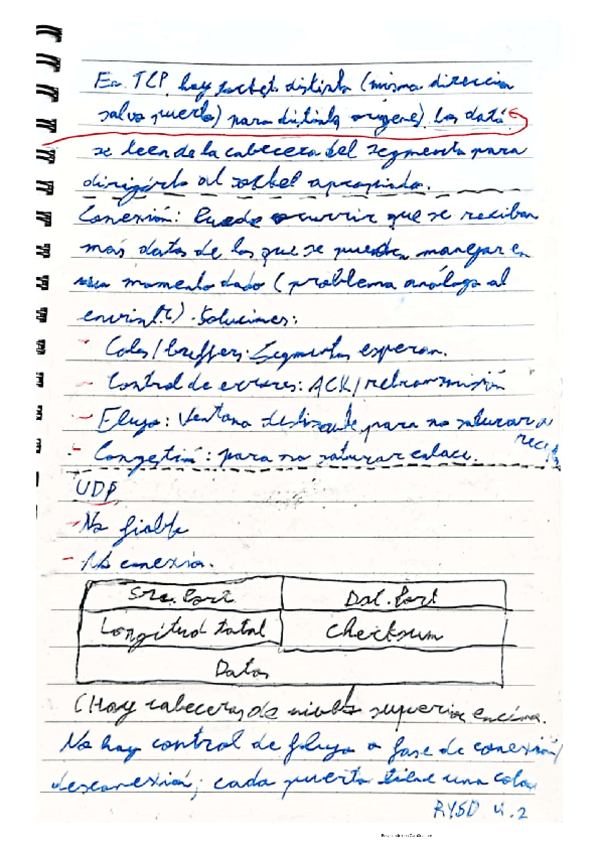 En TCP hay sockets distintos (misma direccion
salvo puerto) para distintos origenes). Los datos
se leen de la cabecera del segmento para
dirigirlo al socket apropiado.
Conexión: Puede ocurrir que se reciban
más datos de los que se pueden manejar en
un momento dado (problema análogo al
). Soluciones:
- Colas/buffers: Segmentos esperan.
- Control de errores: ACK/retransmisión
- Flujo: Ventana deslizante, para no saturar
- Congestión: para no saturar enlace.
UDP
- No fiable
- No conexión.
Src. Port Dst. Port
Longitud total Checksum
Datos
(Hay cabeceras de niveles superior encima.
No hay control de flujo o fase de conexión/
desconexión; cada puerto tiene una cola
RYSD 4.2